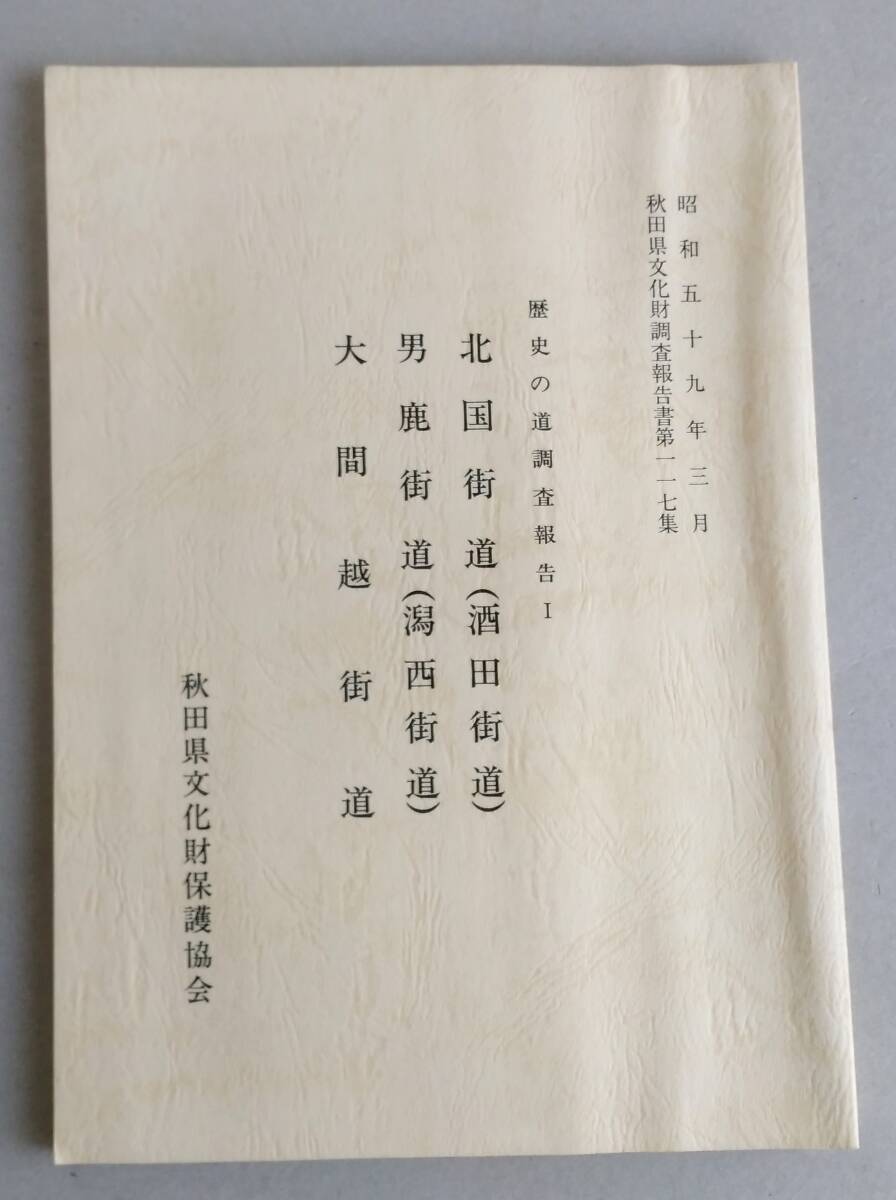 昭和五十九年三月
秋田県文化財調査報告書第一一七集
歴史の道調査報告Ⅰ
北国街道(酒田街道)
男鹿街道(潟西街道)
大間越街道
秋田県文化財保護協会